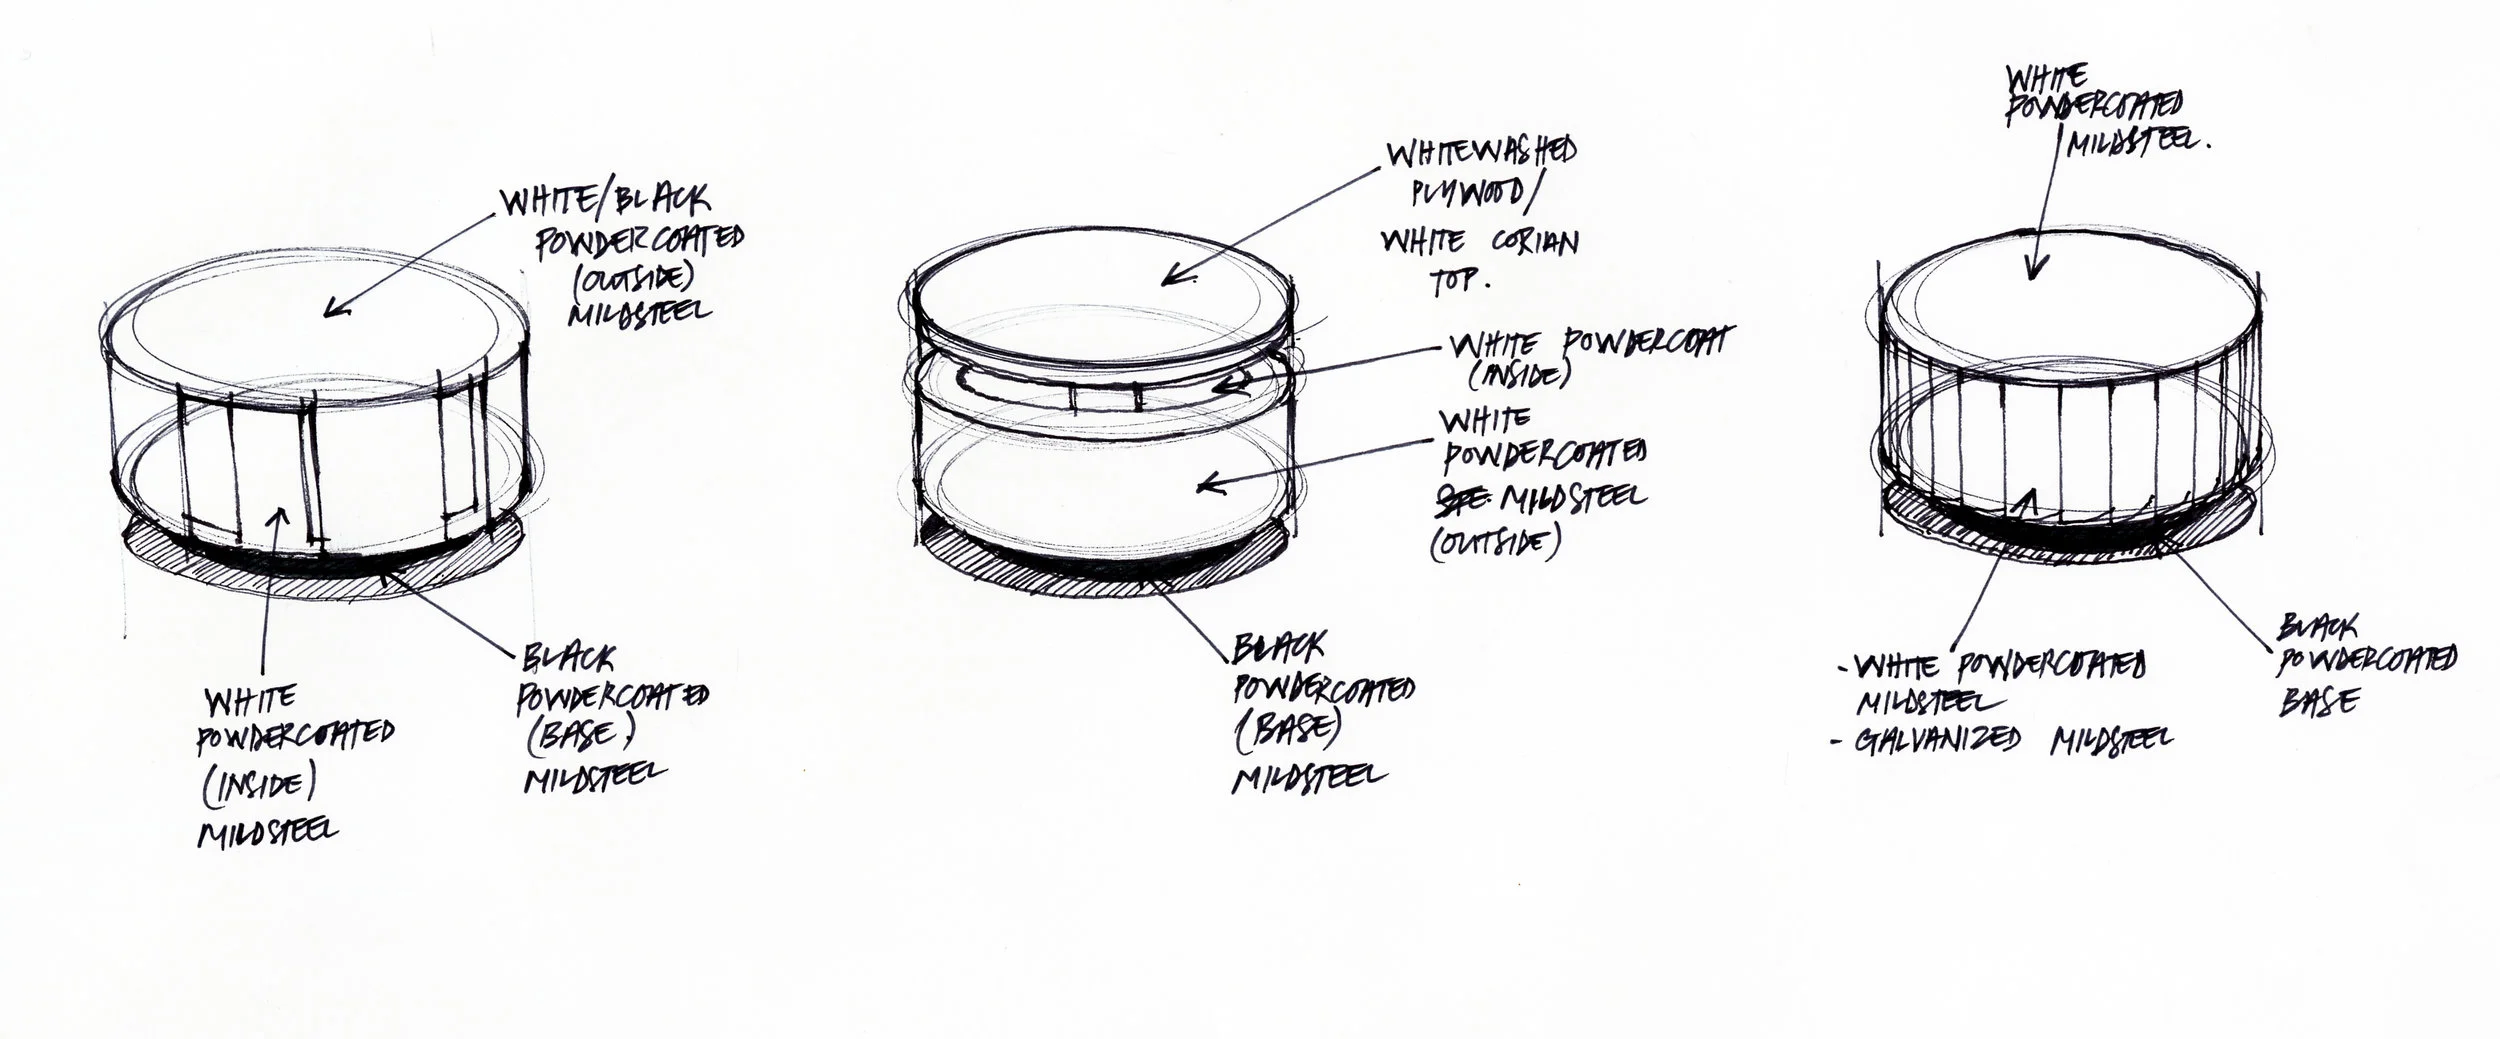 WHITE/BLACK
POWDERCOATED
(OUTSIDE)
MILDSTEEL
WHITE
POWDERCOATED
(INSIDE)
MILDSTEEL
BLACK
POWDERCOATED
(BASE)
MILDSTEEL
WHITEWASHED
PLYWOOD/
WHITE CORIAN
TOP.
WHITE POWDERCOAT
(INSIDE)
WHITE
POWDERCOATED
MILDSTEEL
(OUTSIDE)
BLACK
POWDERCOATED
(BASE)
MILDSTEEL
WHITE
POWDERCOATED
MILDSTEEL.
- WHITE POWDERCOATED
MILDSTEEL
- GALVANIZED MILDSTEEL
BLACK
POWDERCOATED
BASE